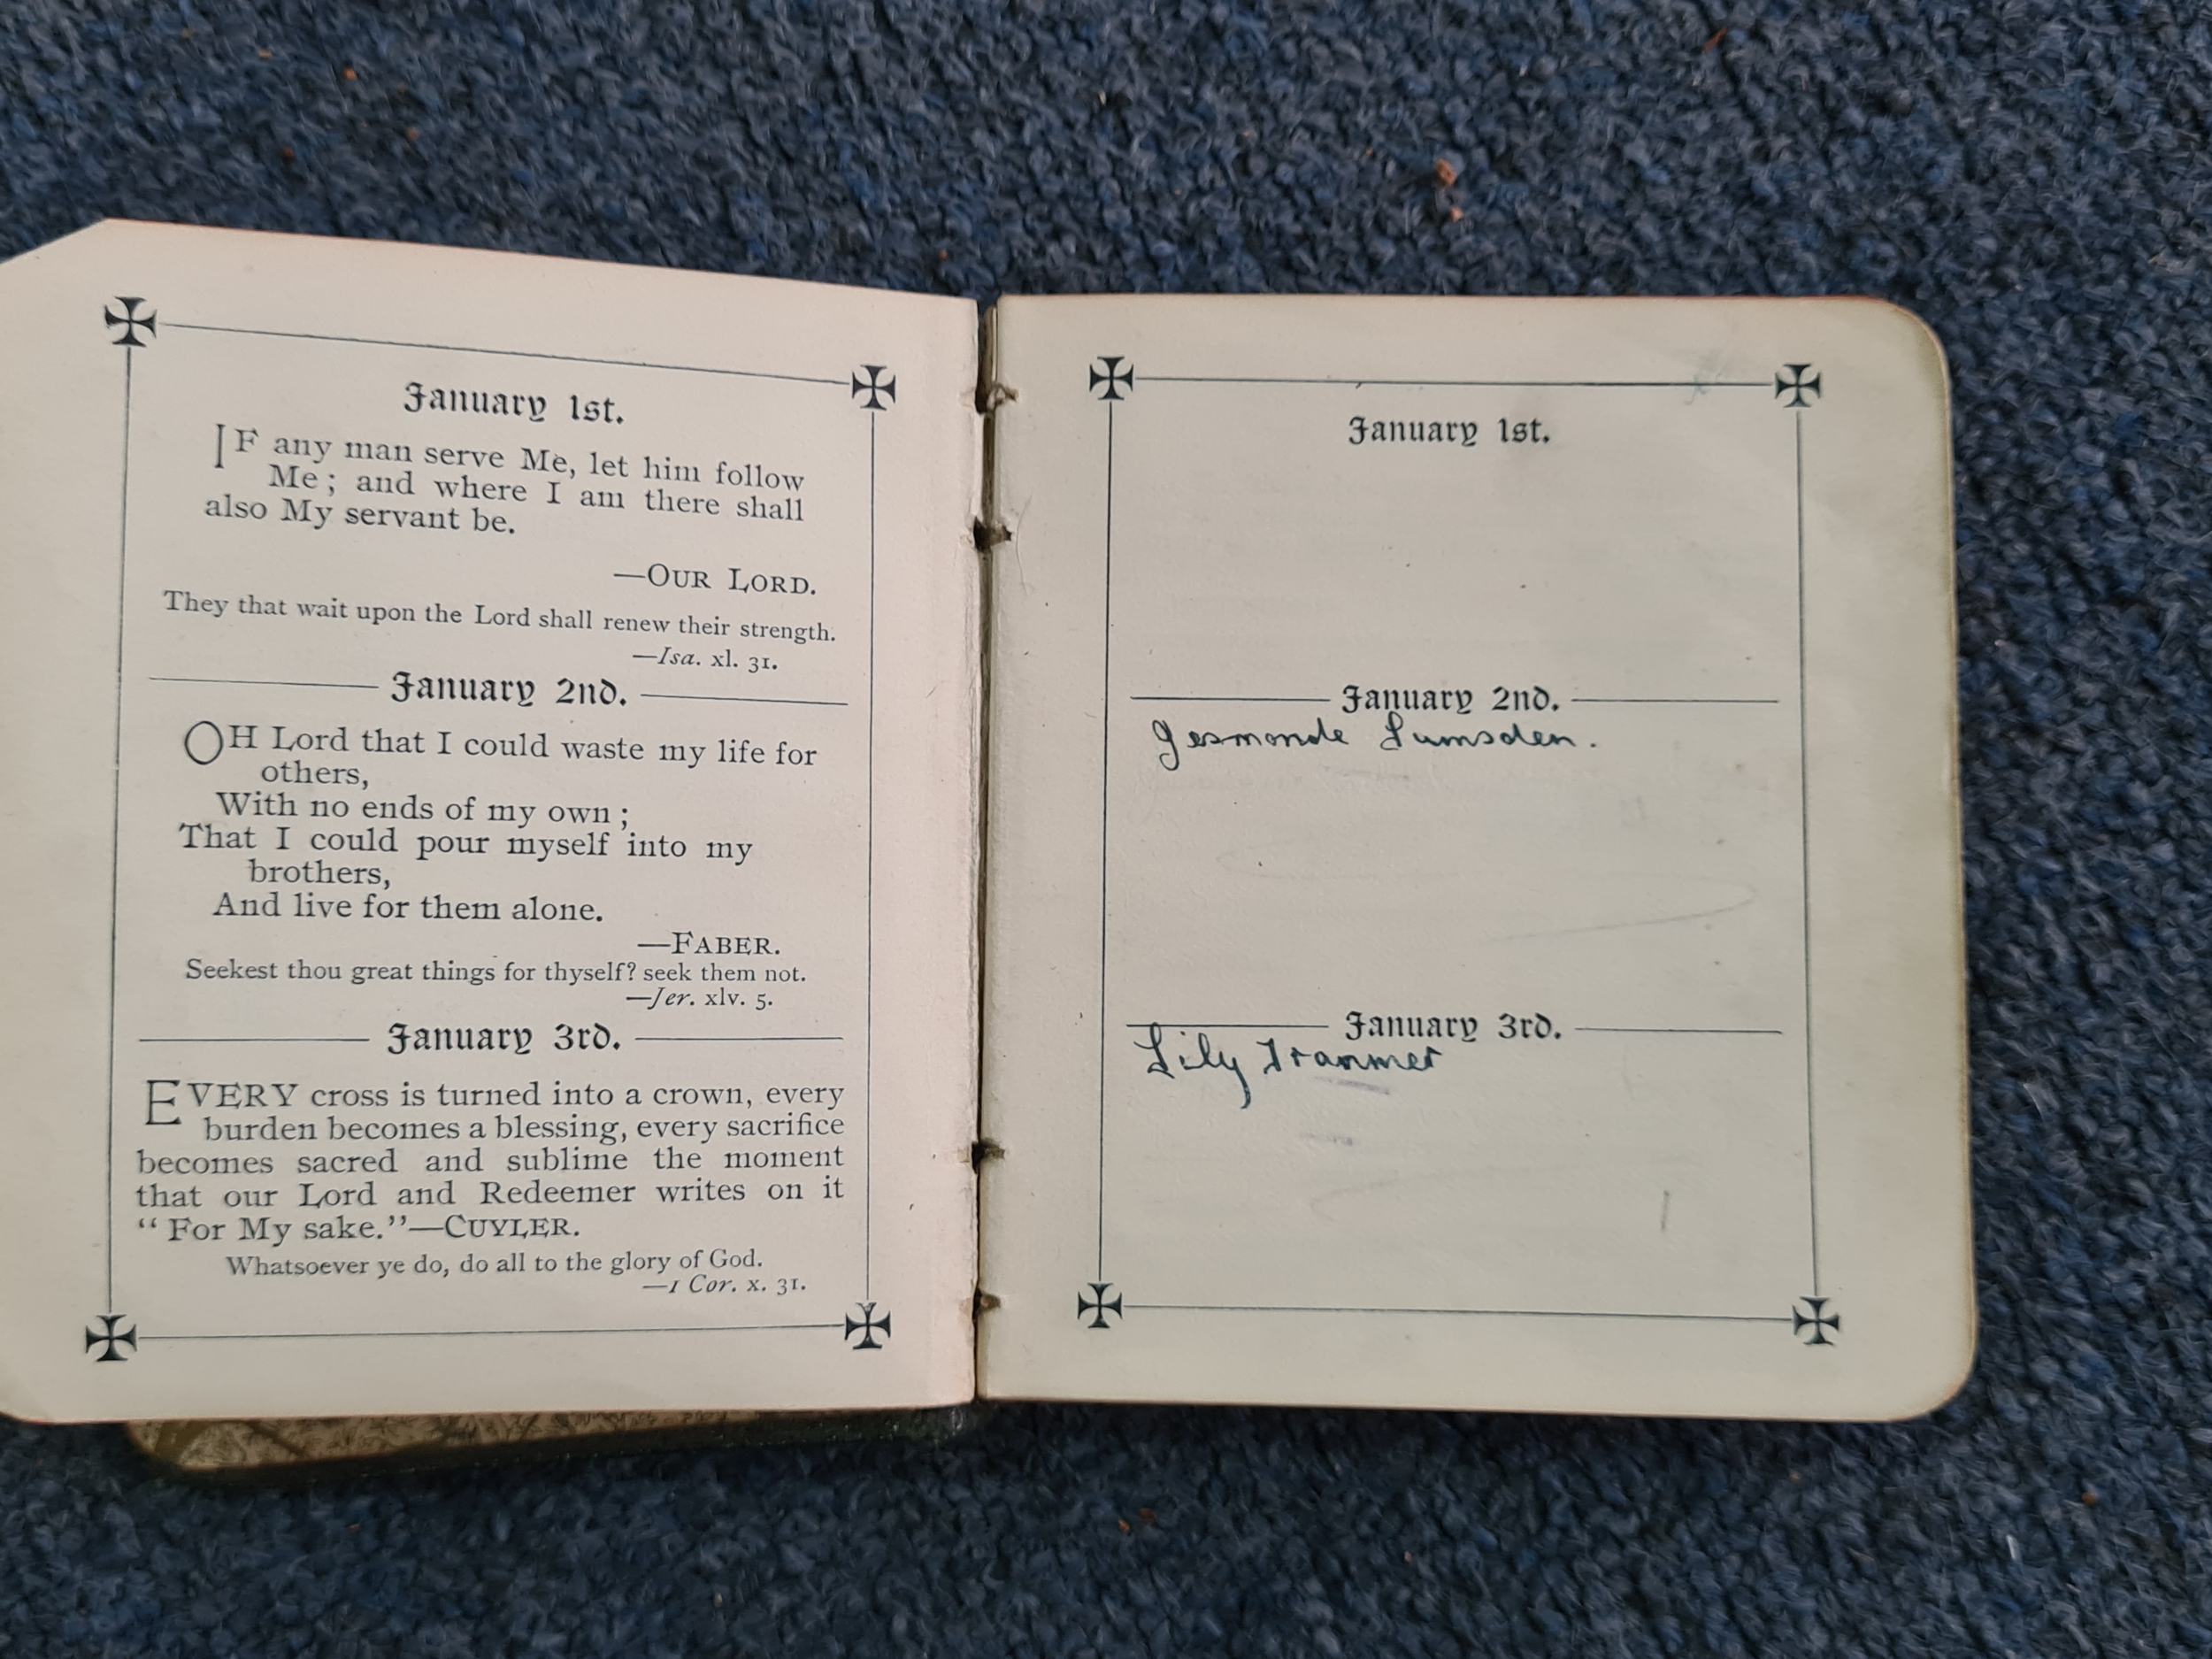 January 1st.
IF any man serve Me, let him follow
Me; and where I am there shall
also My servant be.
—OUR LORD.
They that wait upon the Lord shall renew their strength.
—Isa. xl. 31.
January 2nd.
OH Lord that I could waste my life for
others,
With no ends of my own;
That I could pour myself into my
brothers,
And live for them alone.
—FABER.
Seekest thou great things for thyself? seek them not.
—Jer. xlv. 5.
January 3rd.
EVERY cross is turned into a crown, every
burden becomes a blessing, every sacrifice
becomes sacred and sublime the moment
that our Lord and Redeemer writes on it
"For My sake."—CUYLER.
Whatsoever ye do, do all to the glory of God.
—1 Cor. x. 31.
January 1st.
January 2nd.
Gesmonde Lumsden.
January 3rd.
Lily Tranmer